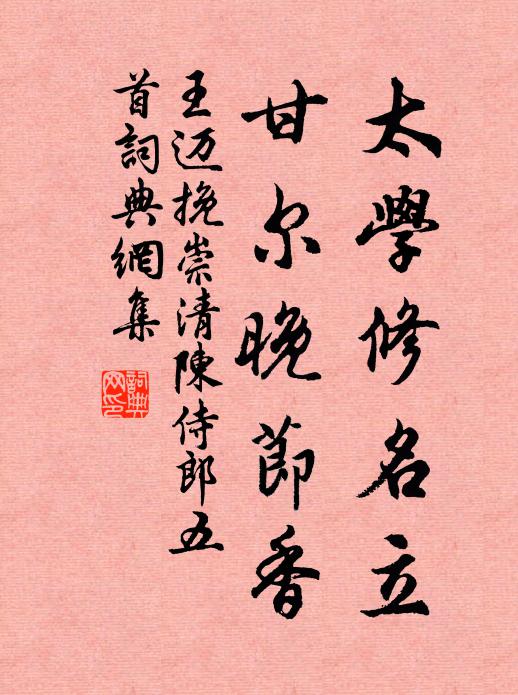 太學修名立
甘尔晚節香
王迈挽崇清陳侍郎五
首詞典網集
詞典网印